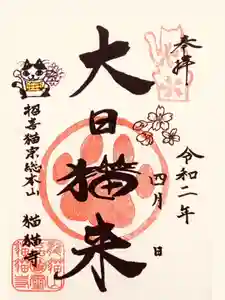 奉拝
令和二年
四月 日
大日猫来
招喜猫宗総本山
猫猫寺